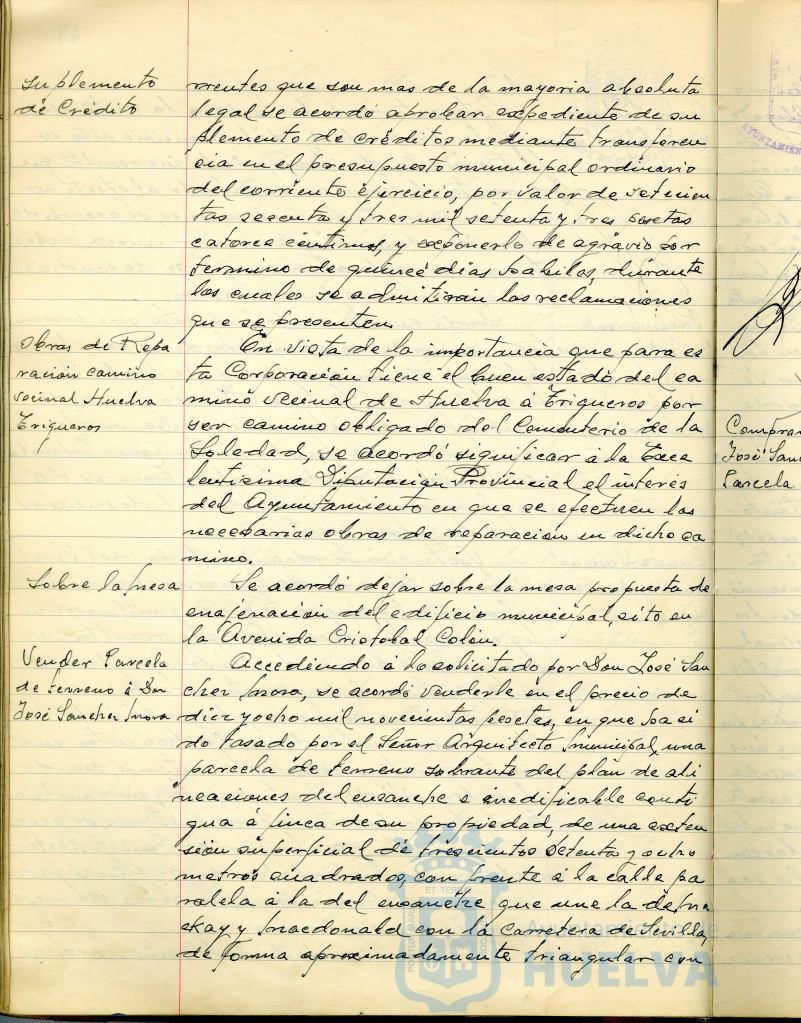 Suplemento
de Crédito
rrentes que son mas de la mayoria absoluta
legal se acordó aprobar expediente de su
plemento de créditos mediante transferen
cia en el presupuesto municipal ordinario
del corriente ejercicio, por valor de setecien
tas sesenta y tres mil setenta y tres pesetas
catorce centimos, y exponerlo de agravio por
termino de quince dias habiles, durante
los cuales se admitiran las reclamaciones
que se presenten.
Obras de Repa
ración camino
vecinal Huelva
Trigueros
En vista de la importancia que para es
ta Corporación tiene el buen estado del ca
mino vecinal de Huelva á Trigueros por
ser camino obligado del Cementerio de la
Soledad, se acordó significar á la Exce
lentisima Diputación Provincial el interés
del Ayuntamiento en que se efectuen las
necesarias obras de reparacion en dicho ca
mino.
Sobre la mesa
Se acordó dejar sobre la mesa propuesta de
enajenación del edificio municipal, sito en
la Avenida Cristobal Colón.
Vender Parcela
de terreno á Don
José Sanchez Mora
Accediendo á lo solicitado por Don José San
chez Mora, se acordó venderle en el precio de
diez y ocho mil novecientas pesetas, en que ha si
do tasado por el Señor Arquitecto Municipal, una
parcela de terreno sobrante del plan de ali
neaciones del ensanche e inedificable conti
gua á finca de su propiedad, de una exten
sión superficial de trescientos setenta y ocho
metros cuadrados, con frente á la calle pa
ralela á la del ensanche que une la de Ma
ckay y Macdonald con la Carretera de Sevilla,
de forma aproximadamente triangular con
Comprar
José San
Parcela
AYUNTAMIEN
Ayuntamiento de
HUELVA